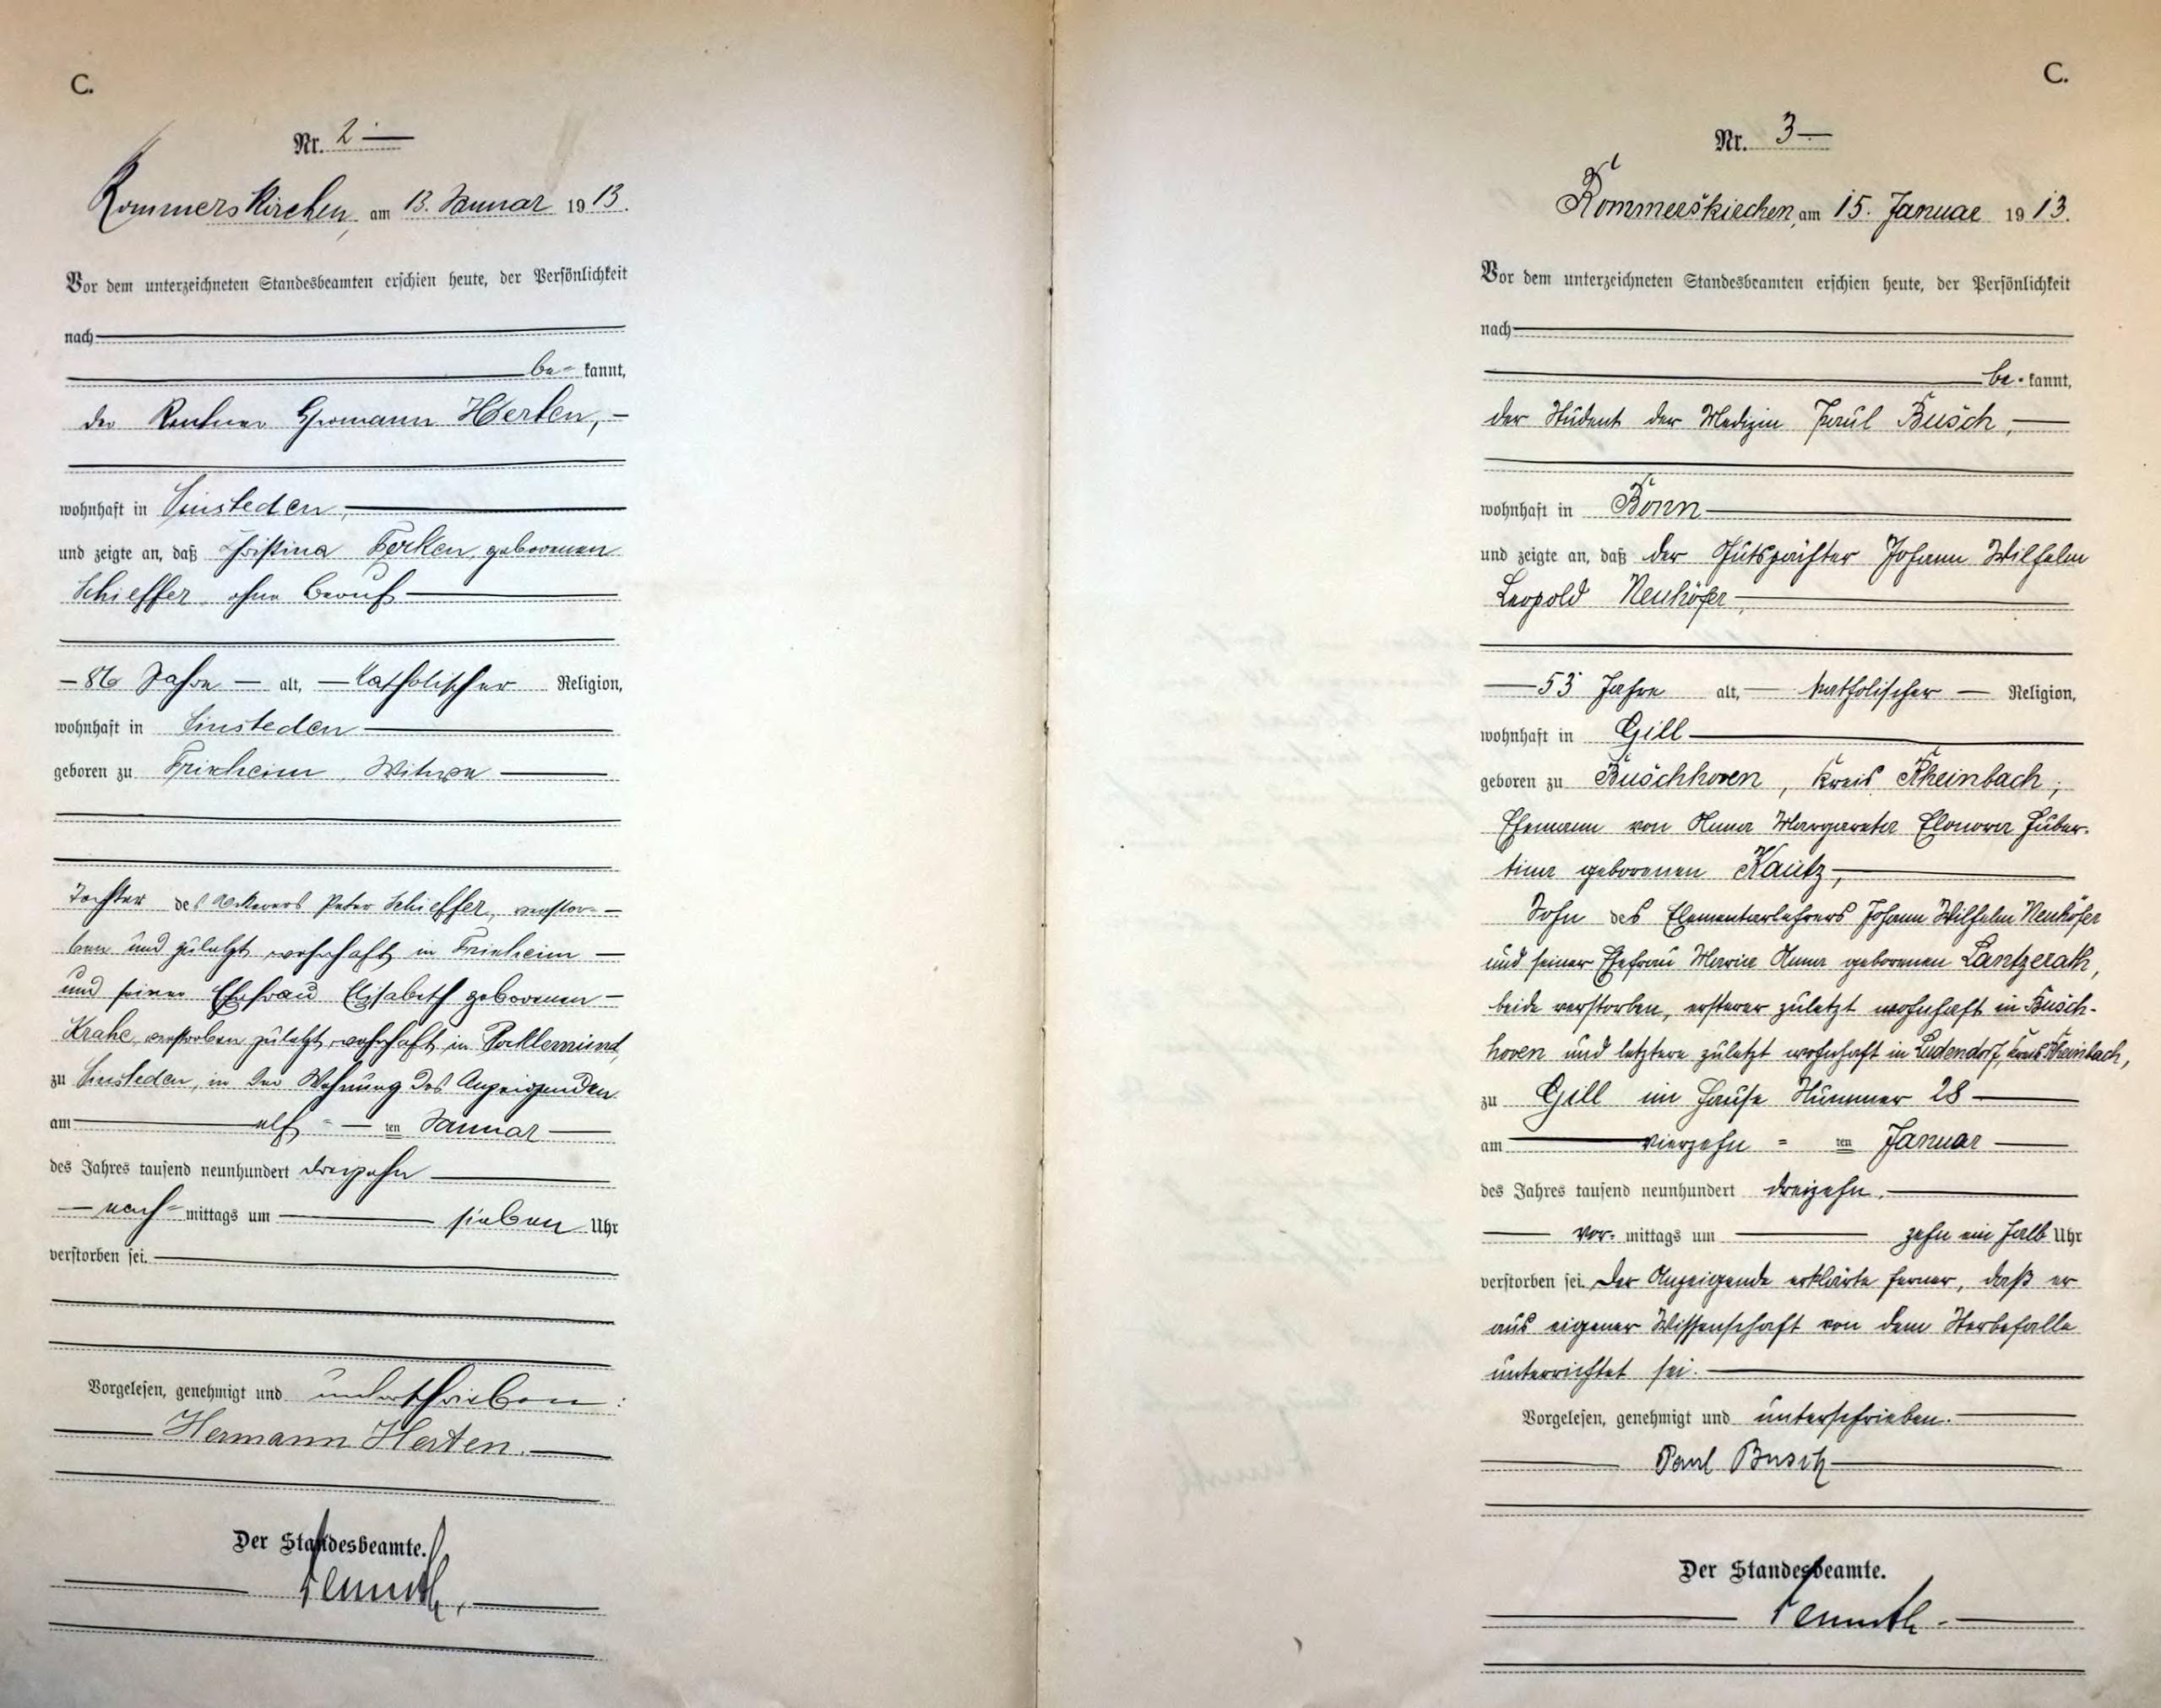 C.
Nr. 2
Rommerskirchen, am 13. Januar 1913.
Vor dem unterzeichneten Standesbeamten erschien heute, der Persönlichkeit
nach
be= kannt,
der Rentner Hermann Herten,
wohnhaft in Sinsteden,
und zeigte an, daß Christina geborenen
Schieffer, ohne Beruf
86 Jahre alt, katholischer Religion,
wohnhaft in Sinsteden
geboren zu Frixheim, Witwe
Tochter des Ackerers Peter Schieffer, verstor=
ben und zuletzt wohnhaft in Frixheim
und seiner Ehefrau Elisabeth geborenen
Krahe, verstorben zuletzt wohnhaft in
zu Sinsteden, in der Wohnung des Anzeigenden
am elf= ten Januar
des Jahres tausend neunhundert dreizehn
nach= mittags um sieben Uhr
verstorben sei.
Vorgelesen, genehmigt und unterschrieben:
Hermann Herten.
Der Standesbeamte.
C.
Nr. 3
Rommerskirchen, am 15. Januar 1913.
Vor dem unterzeichneten Standesbeamten erschien heute, der Persönlichkeit
nach
be= kannt,
der Student der Medizin Paul Busch,
wohnhaft in Bonn
und zeigte an, daß der Gutspächter Johann Wilhelm
Leopold Neuhöfer,
53 Jahre alt, katholischer Religion,
wohnhaft in Gill
geboren zu Buschhoven, Kreis Rheinbach,
Ehemann von Anna Margareta Elonora Huber=
tina geborenen Kautz,
Sohn des Elementarlehrers Johann Wilhelm Neuhöfer
und seiner Ehefrau Maria Anna geborenen Lantzerath,
beide verstorben, ersterer zuletzt wohnhaft in Busch-
hoven und letztere zuletzt wohnhaft in Ludendorf, Kreis Rheinbach,
zu Gill im Hause Nummer 28
am vierzehn= ten Januar
des Jahres tausend neunhundert dreizehn.
vor= mittags um zehn ein halb Uhr
verstorben sei. Der Anzeigende erklärte ferner, daß er
aus eigener Wissenschaft von dem Sterbefalle
unterrichtet sei.
Vorgelesen, genehmigt und unterschrieben.
Paul Busch
Der Standesbeamte.